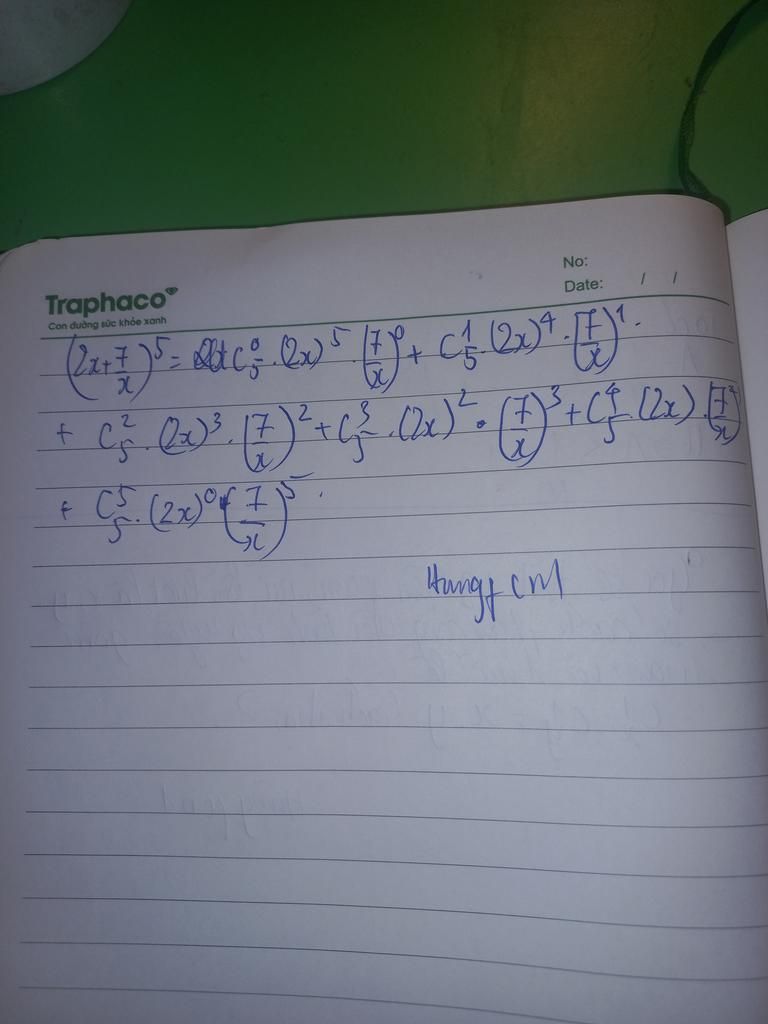 No:
Date: / /
Traphaco
Con đường sức khỏe xanh
(2x+7/x)^5 = C_5^0 . (2x)^5 . (7/x)^0 + C_5^1 . (2x)^4 . (7/x)^1 .
+ C_5^2 . (2x)^3 . (7/x)^2 + C_5^3 . (2x)^2 . (7/x)^3 + C_5^4 . (2x) . (7/x)^4
+ C_5^5 . (2x)^0 (7/x)^5 .